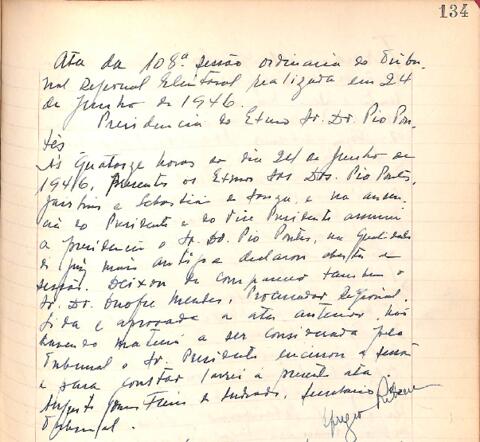 134
Ata da 108ª sessão ordinaria do Tribu-
nal Regional Eleitoral realizada em 24
de Junho de 1946.
Presidencia do Exmo Sr. Dr. Pio Pon-
tes
Às Quatorze horas do dia 24 de Junho de
1946, presentes os Exmos Srs Drs. Pio Pontes,
e Sebastião de Souza, e na ausen-
cia do Presidente e do Vice Presidente assumiu
a presidencia o Sr. Dr. Pio Pontes, na qualidade
de juiz mais antigo declarou aberta a
sessão. Deixou de comparecer tambem o
Sr. Dr. Onofre Mendes, Procurador Regional.
Lida e aprovada a ata anterior, não
havendo materia a ser considerada pelo
Tribunal o Sr. Presidente encerrou a sessão
e para constar lavrei a presente ata.
Augusto de Andrade, Secretario
do Tribunal.